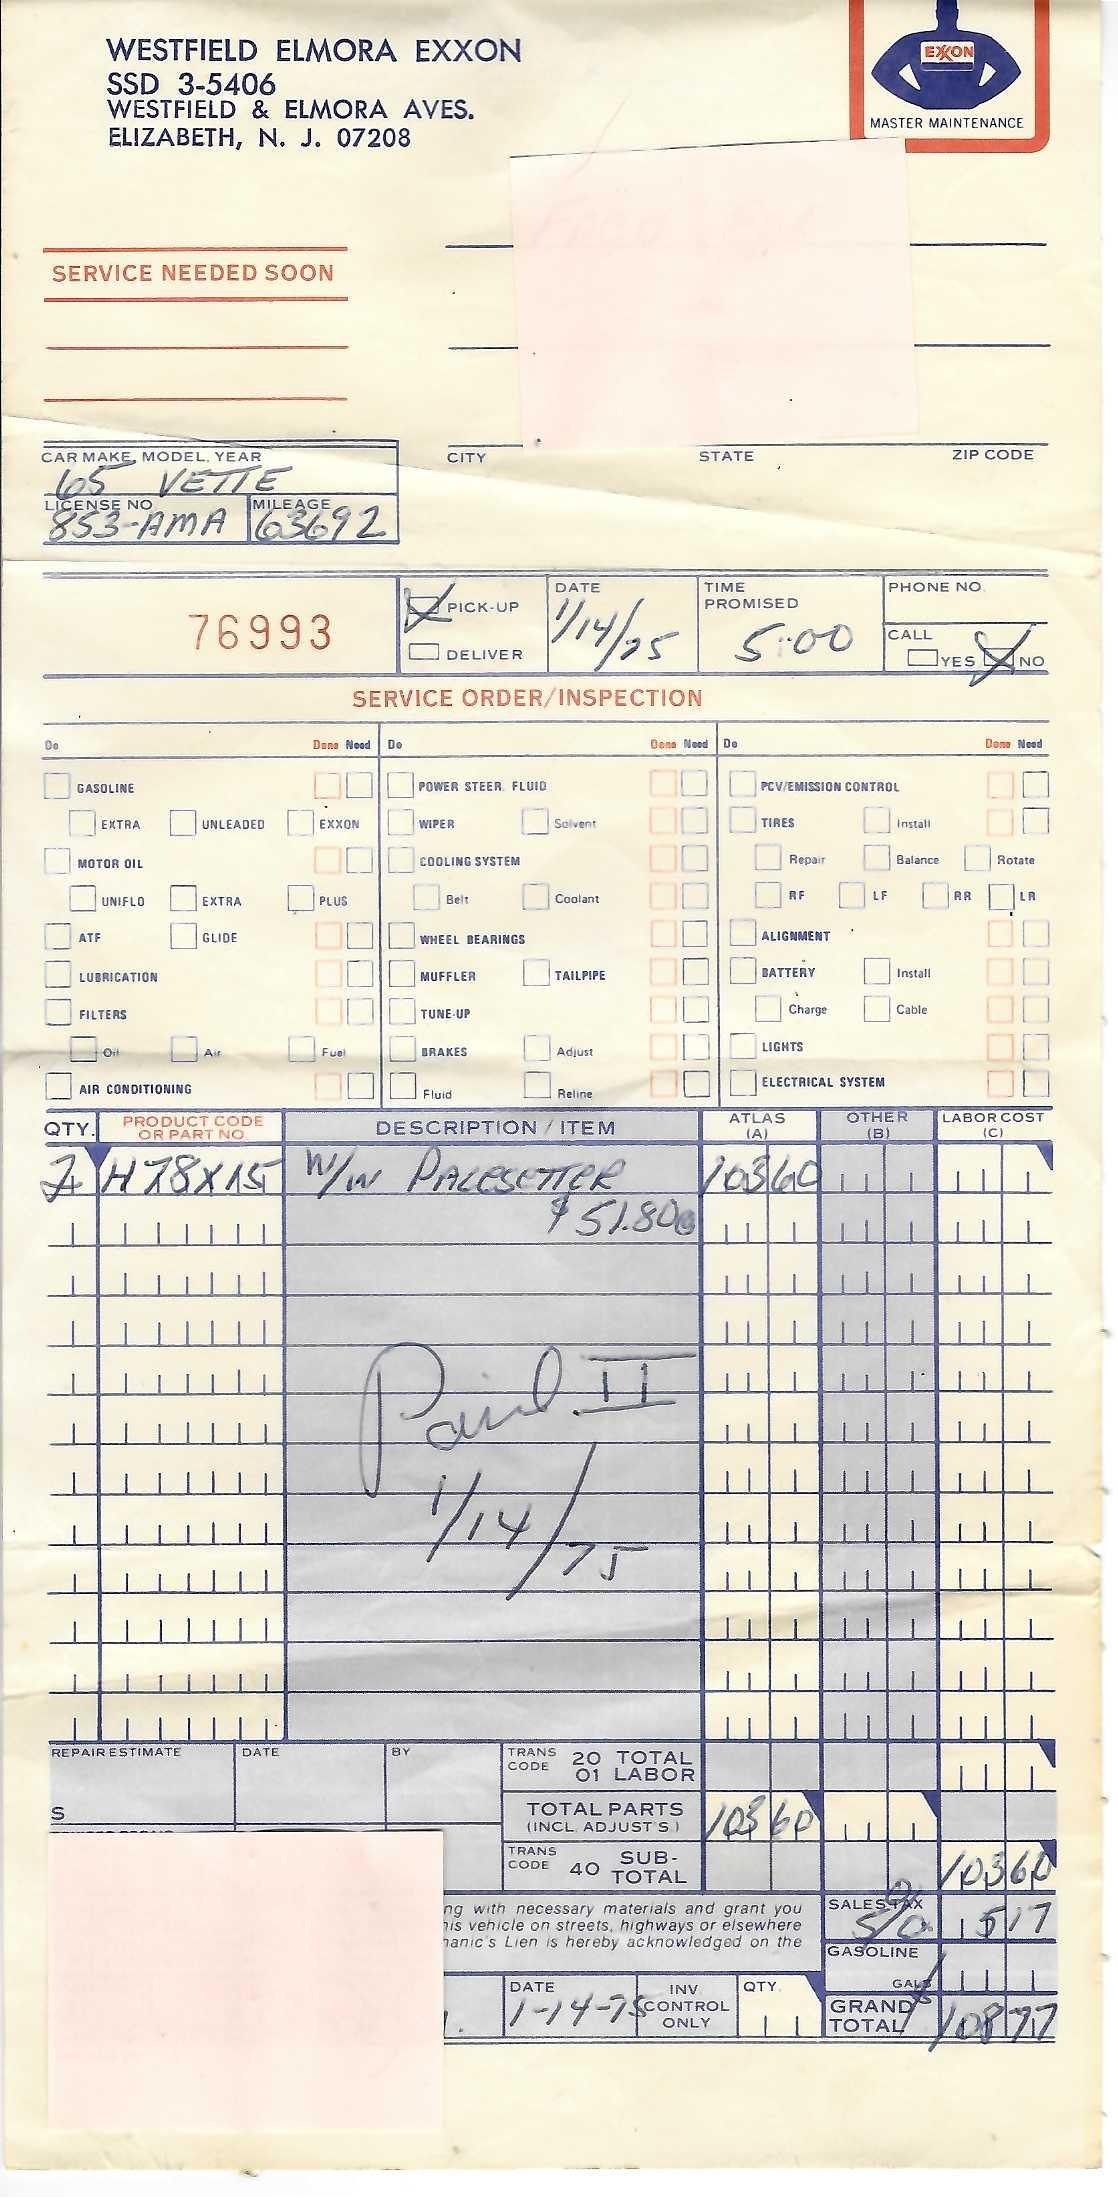 WESTFIELD ELMORA EXXON
SSD 3-5406
WESTFIELD & ELMORA AVES.
ELIZABETH, N. J. 07208
EXXON
MASTER MAINTENANCE
SERVICE NEEDED SOON
CAR MAKE, MODEL, YEAR
65 VETTE
CITY STATE ZIP CODE
LICENSE NO. MILEAGE
853-AMA 63692
76993
PICK-UP
DELIVER
DATE
1/14/75
TIME PROMISED
5:00
PHONE NO.
CALL
YES NO
SERVICE ORDER/INSPECTION
Do Done Need Do Done Need Do Done Need
GASOLINE POWER STEER. FLUID PCV/EMISSION CONTROL
EXTRA UNLEADED EXXON WIPER Solvent TIRES Install
MOTOR OIL COOLING SYSTEM Repair Balance Rotate
UNIFLO EXTRA PLUS Belt Coolant RF LF RR LR
ATF GLIDE WHEEL BEARINGS ALIGNMENT
LUBRICATION MUFFLER TAILPIPE BATTERY Install
FILTERS TUNE-UP Charge Cable
Oil Air Fuel BRAKES Adjust LIGHTS
AIR CONDITIONING Fluid Reline ELECTRICAL SYSTEM
QTY. PRODUCT CODE OR PART NO. DESCRIPTION / ITEM ATLAS (A) OTHER (B) LABOR COST (C)
2 H78X15 W/W PACESETTER 10360
$51.80
Paid II
1/14/75
REPAIR ESTIMATE DATE BY
TRANS CODE 20 TOTAL
01 LABOR
S
TOTAL PARTS 10360
(INCL. ADJUST'S.)
TRANS CODE 40 SUB-TOTAL 10360
ng with necessary materials and grant you
his vehicle on streets, highways or elsewhere
hanic's Lien is hereby acknowledged on the
SALES TAX
5% 517
GASOLINE
GALS
DATE
1-14-75
INV. CONTROL ONLY
QTY.
GRAND TOTAL $10877